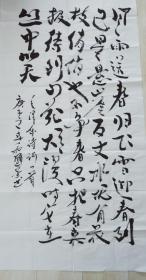 风雨送春归飞雪迎春到
已是悬崖百丈冰犹有花
枝俏俏也不争春只把春来
报待到山花烂漫时她在
丛中笑
毛泽东诗词一首
庚子